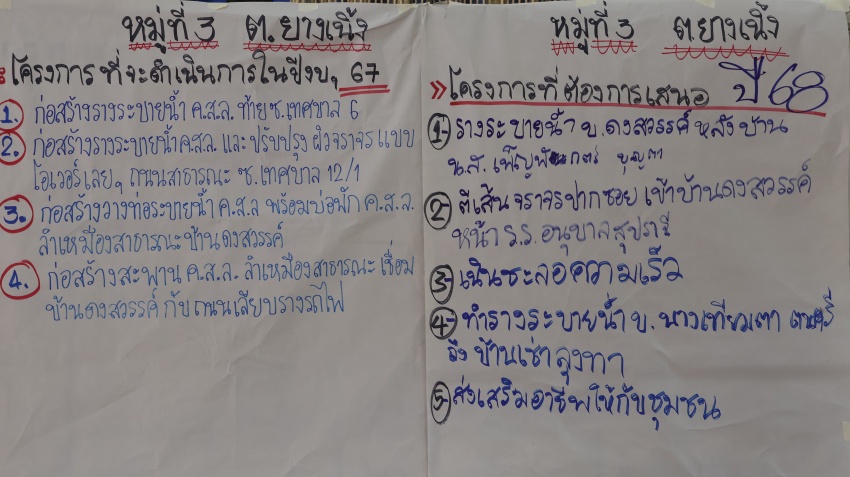 หมู่ที่ 3 ต.ยางเนิ้ง
โครงการที่จะดำเนินการในปีงบ, 67
1. ก่อสร้างรางระบายน้ำ ค.ส.ล. ท้ายซ.เทศบาล 6
2. ก่อสร้างรางระบายน้ำ ค.ส.ล. และ ปรับปรุง ผิวจราจร แบบ
โอเวอร์เลย์, ถนนสาธารณะ ซ.เทศบาล 12/1
3. ก่อสร้างวางท่อระบายน้ำ ค.ส.ล พร้อมบ่อพัก ค.ส.ล.
ลำเหมืองสาธารณะบ้านดงสวรรค์
4. ก่อสร้างสะพาน ค.ส.ล. ลำเหมืองสาธารณะ เชื่อม
บ้านดงสวรรค์ กับถนนเลียบรางรถไฟ
หมู่ที่ 3 ต.ยางเนิ้ง
» โครงการที่ต้องการเสนอ ปี 68
1- รางระบายน้ำ บ.ดงสวรรค์ หลังบ้าน
น.ส.
2- ตีเส้นจราจรปากซอย เข้าบ้านดงสวรรค์
หน้า ร.ร. อนุบาลสุปราณี
3- เนินชะลอความเร็ว
4- ทำรางระบายน้ำ บ. นางเทียมตา
ถึง บ้านเช่าลุงทา
5- ส่งเสริมอาชีพให้กับชุมชน